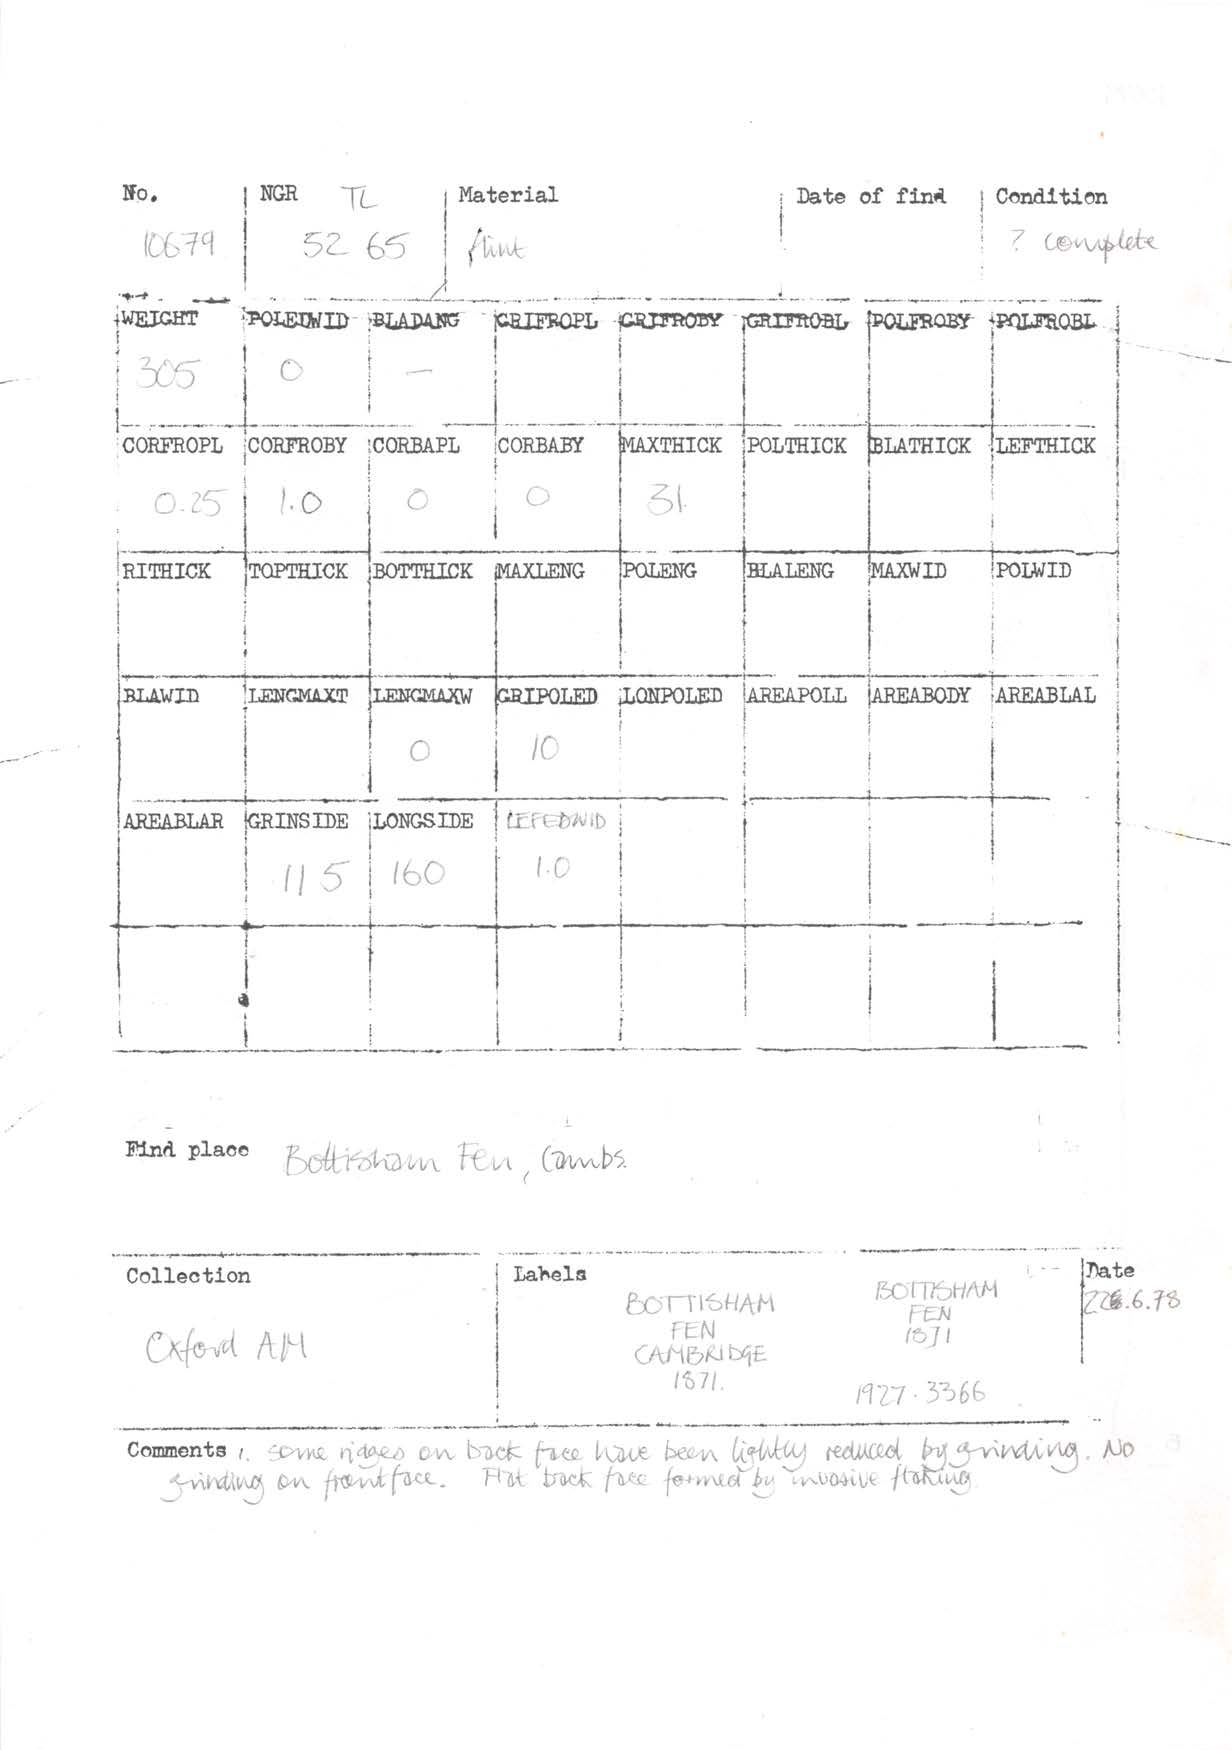 No. NGR TL Material Date of find Condition
10679 52 65 flint ? complete
WEIGHT POLEDWID BLADANG GRIFROPL GRIFROBY GRIFROBL POLFROBY POLFROBL
305 0 —
CORFROPL CORFROBY CORBAPL CORBABY MAXTHICK POLTHICK BLATHICK LEFTHICK
0.25 1.0 0 0 31
RITHICK TOPTHICK BOTTHICK MAXLENG POLENG BLALENG MAXWID POLWID
BLAWID LENGMAXT LENGMAXW GRIPOLED LONPOLED AREAPOLL AREABODY AREABLAL
0 10
AREABLAR GRINSIDE LONGSIDE LEFEDWID
115 160 1.0
Find place Bottisham Fen, Cambs.
Collection Labels Date
Oxford AM
BOTTISHAM
FEN
CAMBRIDGE
1871.
BOTTISHAM
FEN
1871
1927.3366
.6.78
Comments 1. some ridges on back face have been lightly reduced by grinding. No
grinding on front face. Flat back face formed by invasive flaking.